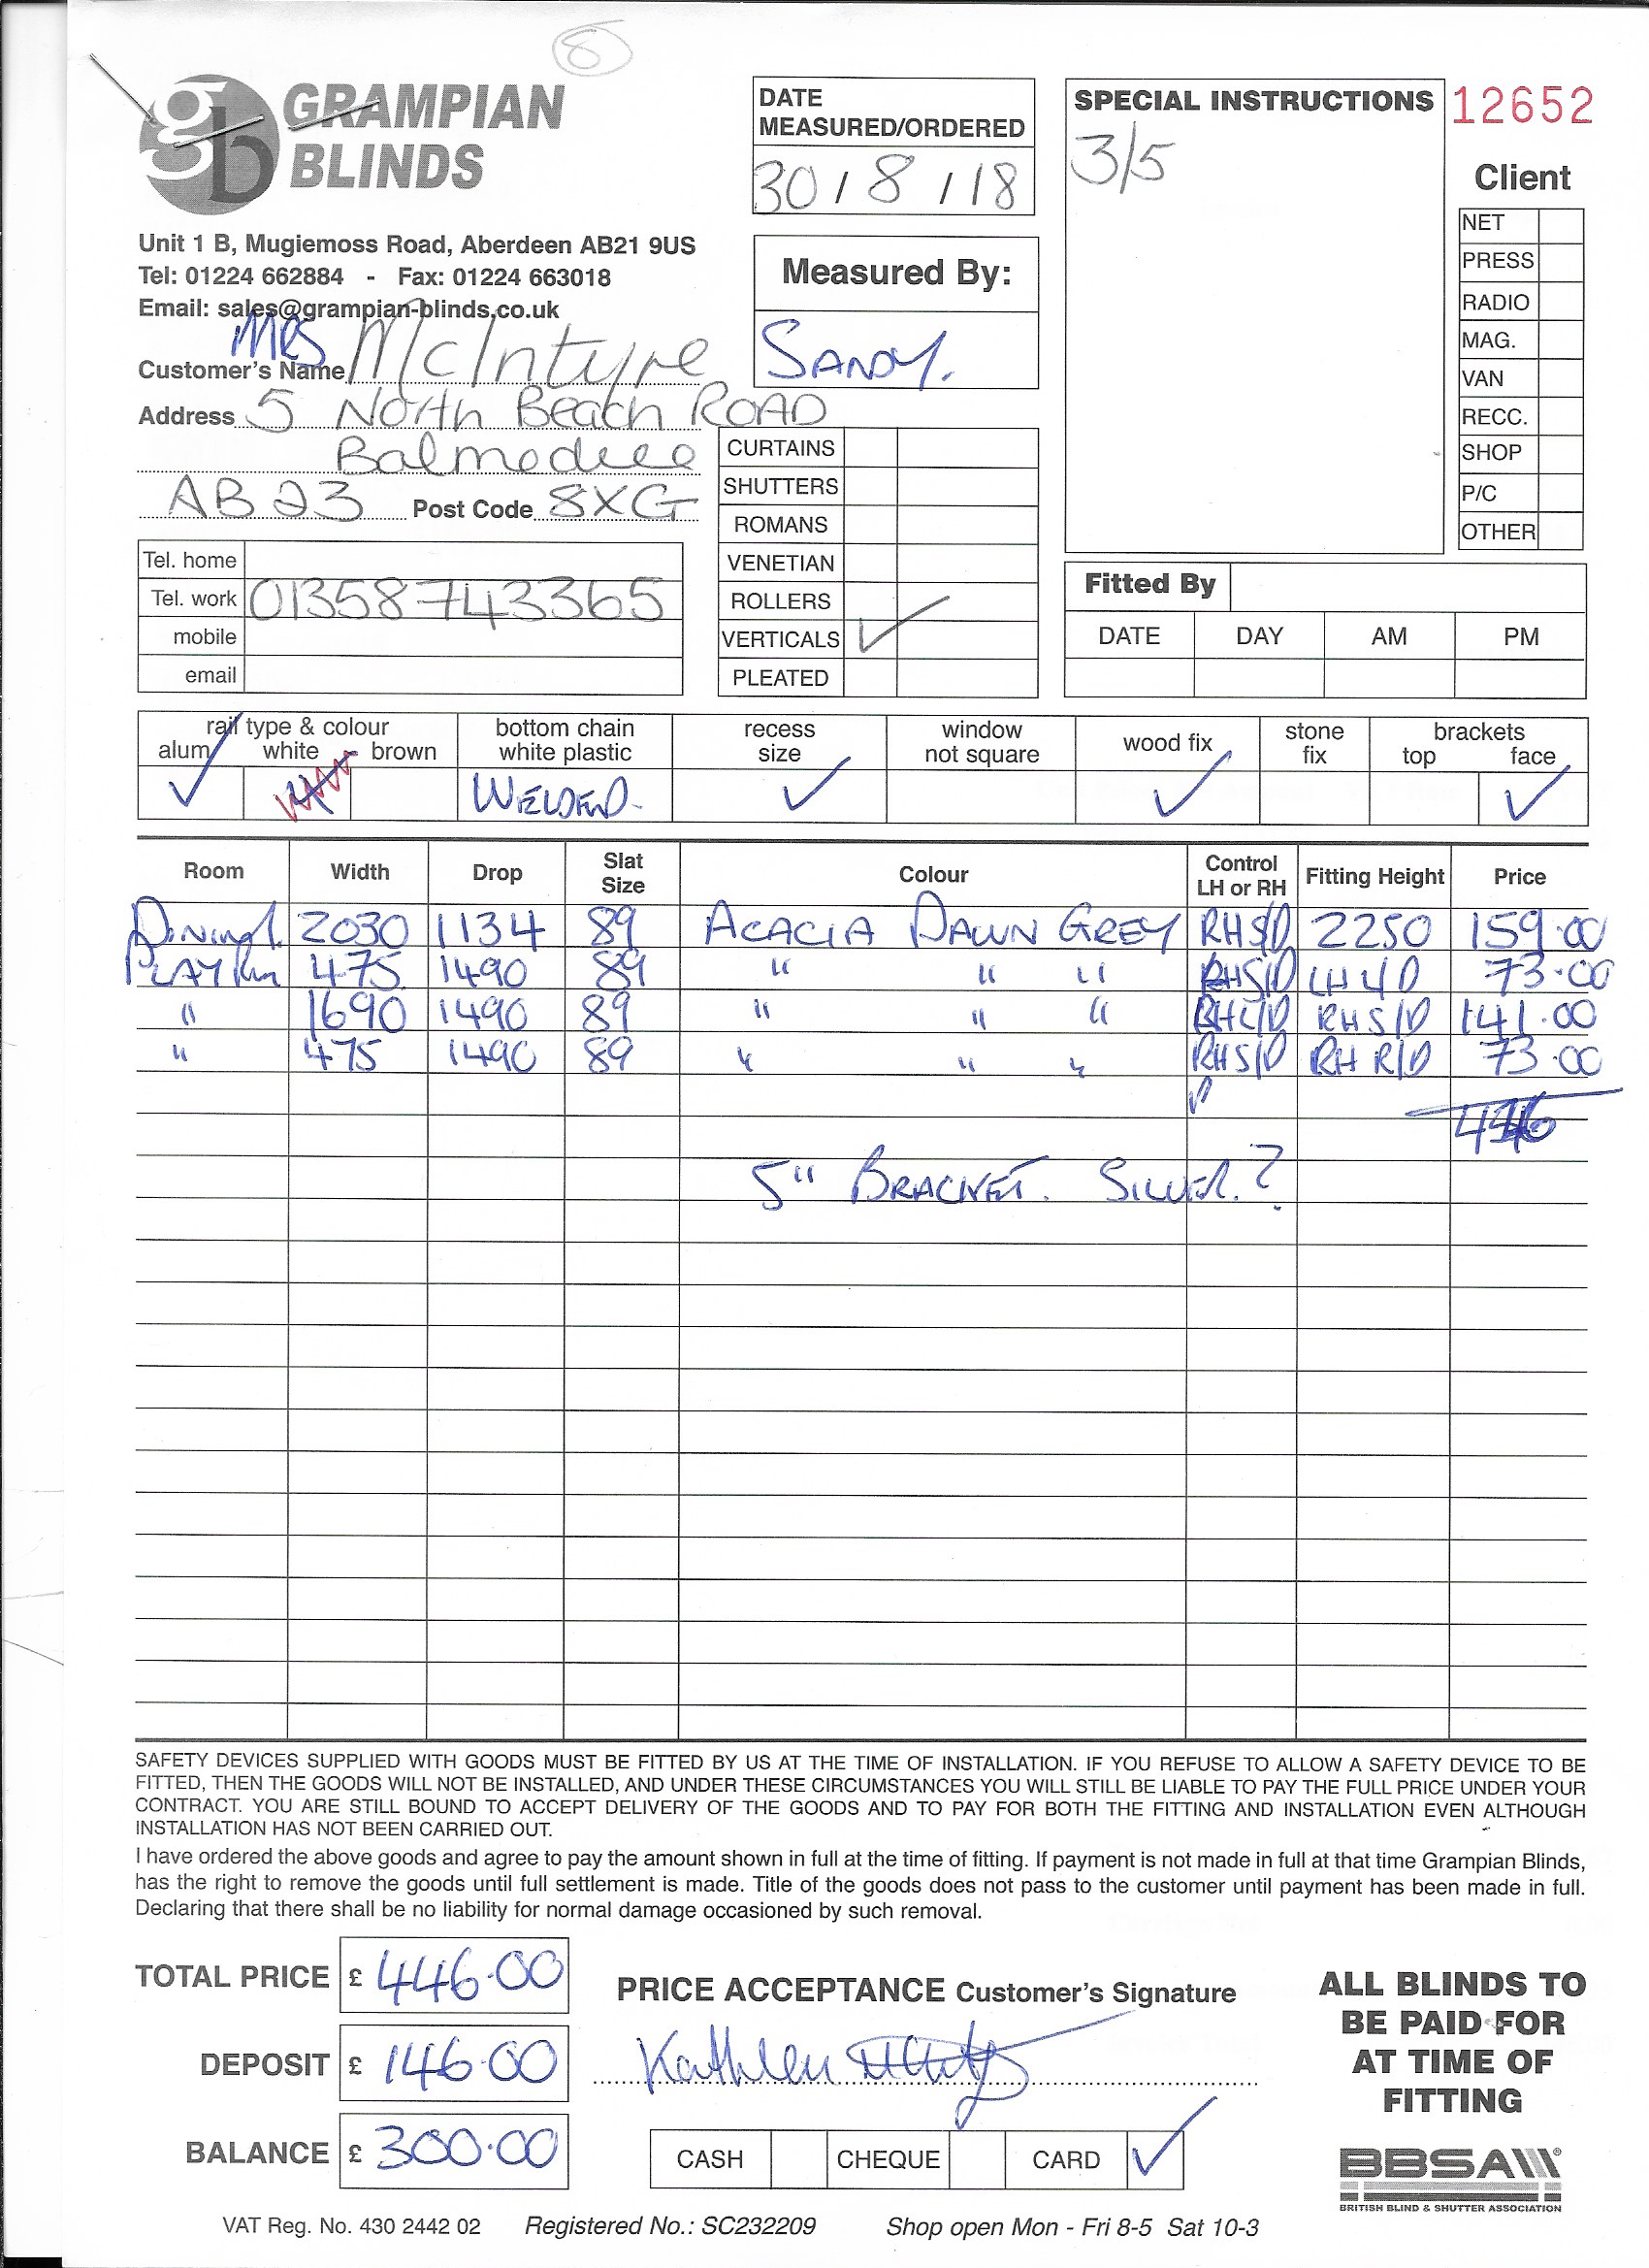 8
GRAMPIAN
BLINDS
Unit 1 B, Mugiemoss Road, Aberdeen AB21 9US
Tel: 01224 662884 - Fax: 01224 663018
Email: sales@grampian-blinds.co.uk
DATE
MEASURED/ORDERED
30 / 8 / 18
Measured By:
SANDY.
SPECIAL INSTRUCTIONS
3/5
12652
Client
NET
PRESS
RADIO
MAG.
VAN
RECC.
SHOP
P/C
OTHER
Customer's Name MRS McIntyre
Address 5 North Beach ROAD
Balmedie
AB23 Post Code 8XG
Tel. home
Tel. work 01358 743365
mobile
email
CURTAINS
SHUTTERS
ROMANS
VENETIAN
ROLLERS
VERTICALS ✓
PLEATED
Fitted By
DATE DAY AM PM
rail type & colour bottom chain recess window wood fix stone brackets
alum white brown white plastic size not square fix top face
✓ WELDED. ✓ ✓ ✓
Room Width Drop Slat Size Colour Control LH or RH Fitting Height Price
2030 1134 89 ACACIA DAWN GREY RHS/D 2250 159.00
PLAY Rm 475 1490 89 " " " RHS/D 73.00
" 1690 1490 89 " " " RHS/D 141.00
" 475 1490 89 " " " RHS/D RH R/D 73.00
446
5" BRACKET. SILVER.?
SAFETY DEVICES SUPPLIED WITH GOODS MUST BE FITTED BY US AT THE TIME OF INSTALLATION. IF YOU REFUSE TO ALLOW A SAFETY DEVICE TO BE
FITTED, THEN THE GOODS WILL NOT BE INSTALLED, AND UNDER THESE CIRCUMSTANCES YOU WILL STILL BE LIABLE TO PAY THE FULL PRICE UNDER YOUR
CONTRACT. YOU ARE STILL BOUND TO ACCEPT DELIVERY OF THE GOODS AND TO PAY FOR BOTH THE FITTING AND INSTALLATION EVEN ALTHOUGH
INSTALLATION HAS NOT BEEN CARRIED OUT.
I have ordered the above goods and agree to pay the amount shown in full at the time of fitting. If payment is not made in full at that time Grampian Blinds,
has the right to remove the goods until full settlement is made. Title of the goods does not pass to the customer until payment has been made in full.
Declaring that there shall be no liability for normal damage occasioned by such removal.
TOTAL PRICE £ 446.00
DEPOSIT £ 146.00
BALANCE £ 300.00
PRICE ACCEPTANCE Customer's Signature
Kathleen
CASH CHEQUE CARD ✓
ALL BLINDS TO
BE PAID FOR
AT TIME OF
FITTING
BBSA
BRITISH BLIND & SHUTTER ASSOCIATION
VAT Reg. No. 430 2442 02 Registered No.: SC232209 Shop open Mon - Fri 8-5 Sat 10-3